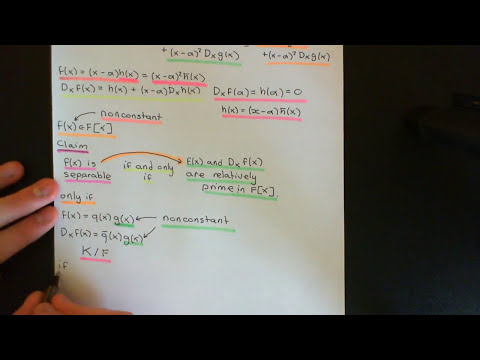 +(x-α)² Dₓg(x) +(x-α)² Dₓg(x)
f(x) = (x-α)h(x) = (x-α)² h̄(x)
Dₓf(x) = h(x) + (x-α)Dₓh(x) Dₓf(α) = h(α) = 0
h(x) = (x-α)h̄(x)
nonconstant
f(x) ∈ F[x]
Claim
f(x) is separable if and only if f(x) and Dₓf(x) are relatively prime in F[x]
only if
f(x) = q(x) g(x) nonconstant
Dₓf(x) = q̄(x) g(x)
K/F
if